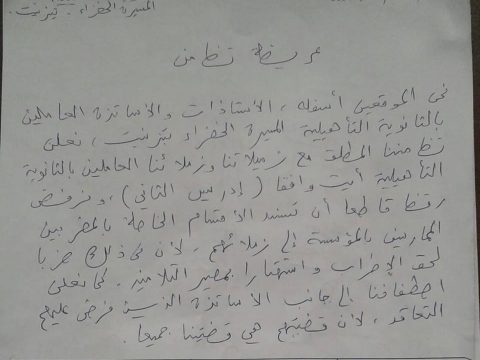 المسيرة الخضراء. تيزنيت.
عريضة تضامن
نحن الموقعين أسفله، الأستاذات والأساتذة العاملين
بالثانوية التأهيلية المسيرة الخضراء بتزنيت، نعلن
تضامننا المطلق مع زميلاتنا وزملائنا العاملين بالثانوية
التأهيلية أيت وافقا (إدريس الثاني)، ونرفض
رفضا قاطعا أن تسند الأقسام الخاصة بالمضربين
الممارسين بالمؤسسة إلى زملائهم، لأن في ذلك ضربا
لحق الإضراب واستهتارا بمصير التلاميذ. كما نعلن
اصطفافنا إلى جانب الأساتذة الذين فرض عليهم
التعاقد، لأن قضيتهم هي قضيتنا جميعا.